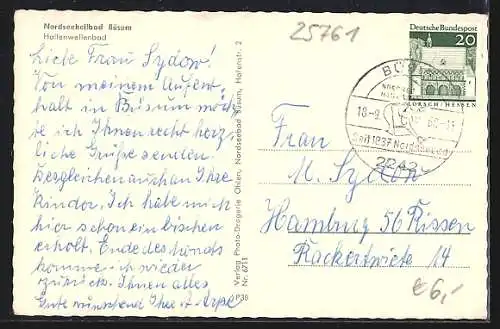 Nordseeheilbad Büsum
Hallenwellenbad
25761
Deutsche Bundespost
20
LORSCH/HESSEN
2242
Seit 1837 Nordseebad
Liebe Frau Sydow!
Von meinem Aufent-
halt in Büsum möch-
te ich Ihnen recht herz-
liche Grüße senden.
Desgleichen auch an Ihre
Kinder. Ich habe mich
hier schon ein bischen
erholt. Ende des Monats
komme ich wieder
zurück. Ihnen alles
Gute wünschend Ihre
Verlag Photo-Drogerie Ohlen, Nordseebad Büsum, Hafenstr. 2
Nr. 6711
P36
Frau
M. Sydow
Hamburg 56 Rissen
Rackertwiete 14
€6,-